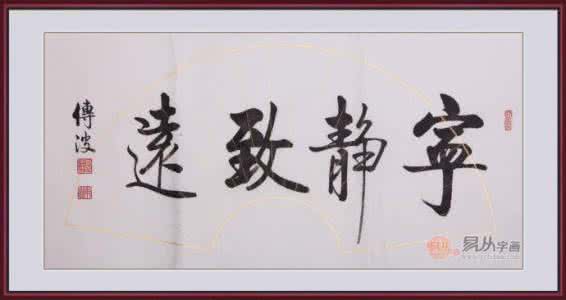 寧静致遠
傅波
易从字画